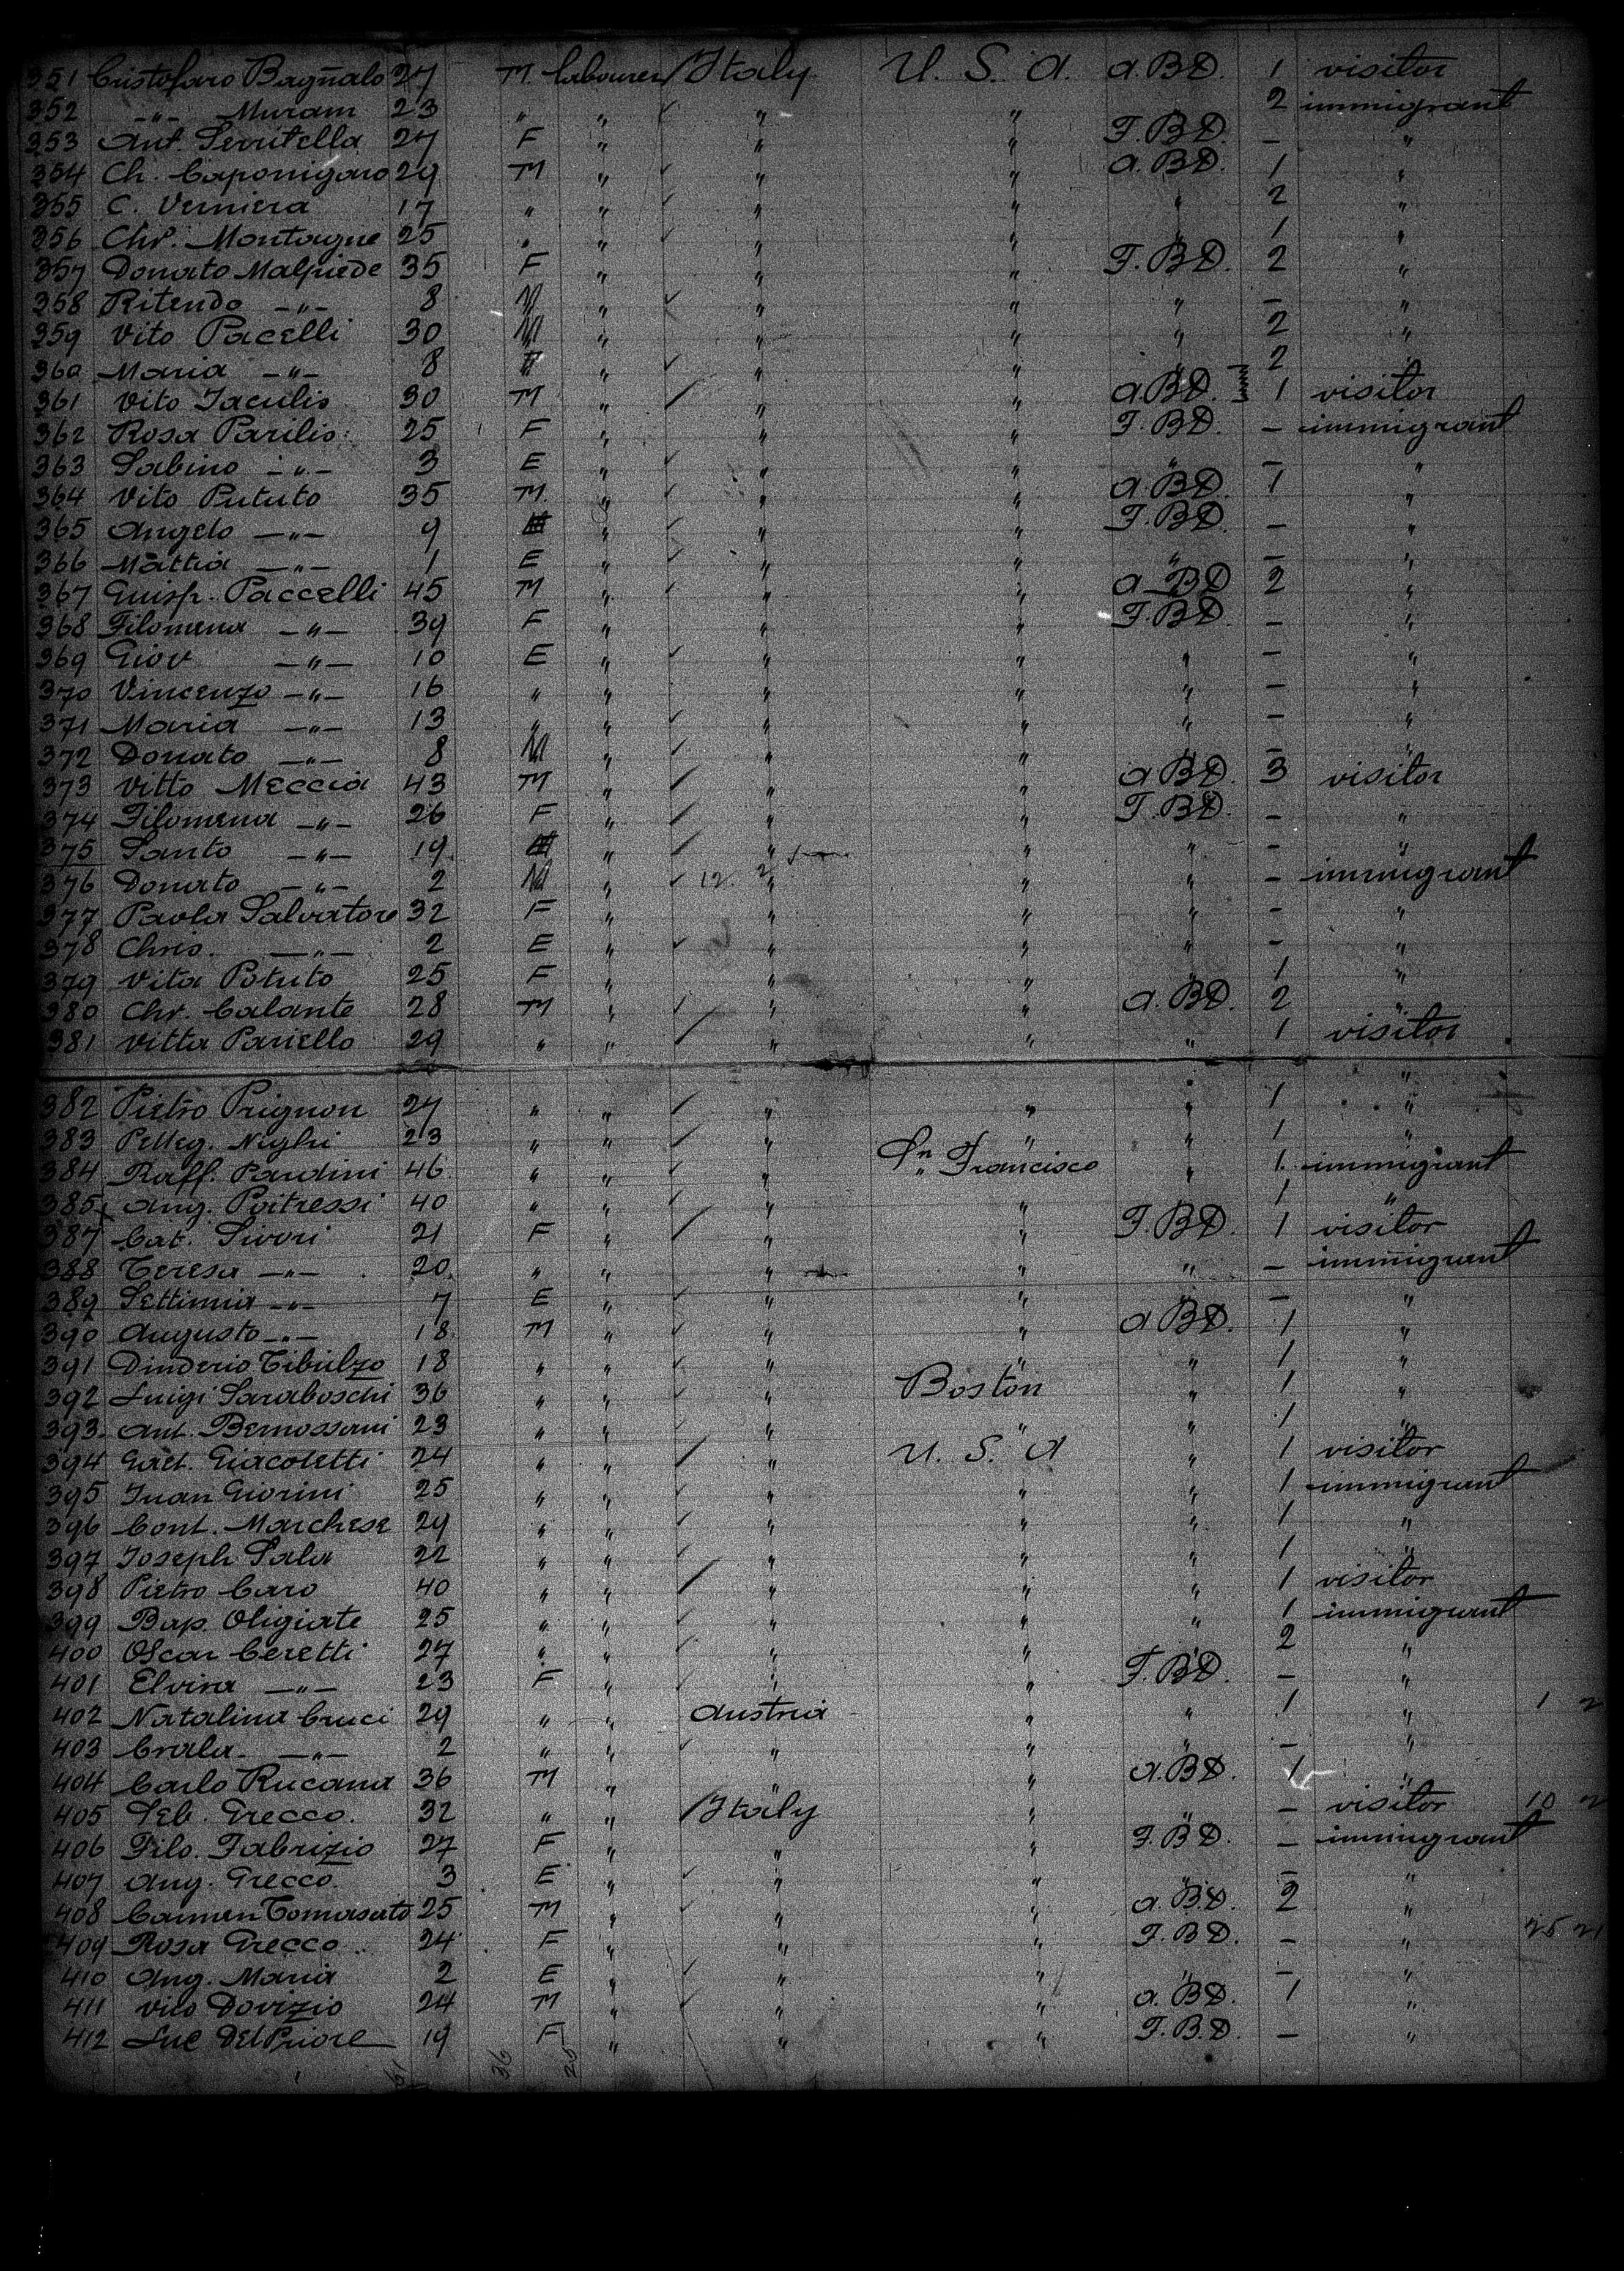 351 Cristofaro Bagnalo 27 M labourer / Italy U. S. A. a.BD. 1 visitor
352 -"- Muram 23 " " ✓ " " 2 immigrant
353 Ant. Serritella 27 F " " " F.B.D. - "
354 Ch. Caponigaro 29 M " ✓ " " a.BD. 1 "
355 C. Verniera 17 " " ✓ " " " 2 "
356 Chr. Montagne 25 " " ✓ " " " 1 "
357 Donato Malpiede 35 F " " " F.B.D. 2 "
358 Ritendo -"- 8 M " ✓ " " " - "
359 Vito Pacelli 30 M " " " " 2 "
360 Maria -"- 8 " ✓ " " " 2
361 Vito Iaculis 30 M " / " " a.BD. 1 visitor
362 Rosa Parilis 25 F " " " F.B.D. - immigrant
363 Sabino -"- 3 E " ✓ " " " - "
364 Vito Pututo 35 M " ✓ " " a.BD. 1 "
365 Angelo -"- 9 " ✓ " " F.BD - "
366 Mattia -"- 1 E " ✓ " " " - "
367 Guisp. Paccelli 45 M " ✓ " " a BD 2 "
368 Filomena -"- 39 F " " " F.BD. - "
369 Giov -"- 10 E " ✓ " " " - "
370 Vincenzo -"- 16 " " " " " - "
371 Maria -"- 13 " " ✓ " " " - "
372 Donato -"- 8 M " ✓ " " " - "
373 Vitto Meccia 43 M " / " " a BD. 3 visitor
374 Filomena -"- 26 F " / " " F.BD. - "
375 Santo -"- 19 " / " " " - "
376 Donato -"- 2 M " ✓ 12 " " " - immigrant
377 Paola Salvatore 32 F " " " " - "
378 Chris. -"- 2 E " ✓ " " " - "
379 Vita Potuto 25 F " " " " 1 "
380 Chr. Calante 28 M " ✓ " " a. BD. 2 "
381 Vitta Pariello 29 " " / " " " 1 visitor
382 Pietro Prignon 27 " " / " " " 1 "
383 Pelleg. Nighi 23 " " / " " " 1 "
384 Raff. Pardini 46 " " ✓ " Sn Francisco " 1 immigrant
385 Ang. Poitressi 40 " " ✓ " " " 1 "
387 Cat. Sivori 21 F " / " " F.BD. 1 visitor
388 Teresa -"- 20 " " " " " - immigrant
389 Settimia -"- 7 E " ✓ " " " - "
390 Augusto -"- 18 M " ✓ " " a BD. 1 "
391 Dinderio Tibulzo 18 " " ✓ " " " 1 "
392 Luigi Saraboschi 36 " " ✓ " Boston " 1 "
393 Ant. Bernossani 23 " " ✓ " " " 1 "
394 Gaet. Giacoletti 24 " " / " U. S. A " 1 visitor
395 Juan Giorini 25 " " ✓ " " " 1 immigrant
396 Cont. Marchese 29 " " ✓ " " " 1 "
397 Joseph Sala 22 " " ✓ " " " 1 "
398 Pietro Caro 40 " " / " " " 1 visitor
399 Bap. Oligiate 25 " " ✓ " " " 1 immigrant
400 Oscar Ceretti 27 " " ✓ " " " 2 "
401 Elvira -"- 23 F " ✓ " " F.B.D. - "
402 Natalina Cruci 29 " " Austria " " 1 " 1 2
403 Crala -"- 2 " " ✓ " " " - "
404 Carlo Rucana 36 M " " " a.BD. 1 "
405 Seb. Grecco. 32 " " / Italy " " - visitor 10 2
406 Filo. Fabrizio 27 F " " " F.B.D. - immigrant
407 Ang. Grecco. 3 E " ✓ " " " - "
408 Carmen Tomasuto 25 M " ✓ " " a.B.D. 2 "
409 Rosa Grecco 24 F " " " F.B.D. - " 25 21
410 Ang. Maria 2 E " ✓ " " " - "
411 Vito Dovizio 24 M " ✓ " " a. BD. 1 "
412 Luc DelPriore 19 F " " " F.B.D. - "
61 36 25